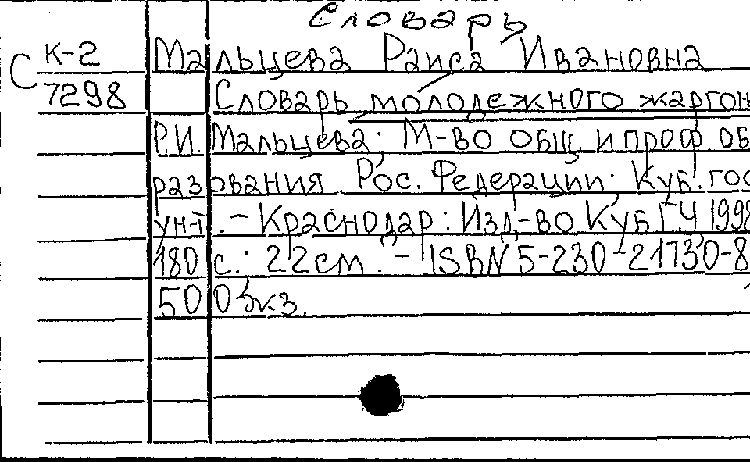 Словарь
К-2 Мальцева Раиса Ивановна
С 7298 Словарь молодежного жаргон
Р.И. Мальцева; М-во общ. и проф. об
разования Рос. Федерации. Куб. гос
ун-т. – Краснодар: Изд-во КубГУ 1998
180 с.: 22см. – ISBN 5-230-21730-8
500 экз.